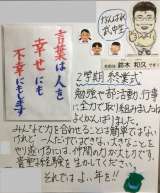 がんばれ
言葉は人を
幸せにも
不幸にもします
鈴木 和久
2学期 終業式
勉強や部活動、行事
に全力で取り組みましたね。
よくがんばりました。
みんなで力を合わせることは簡単ではない
けれど、一人だけではできない大きなことを
やり遂げるのは、仲間の力があってこそです。
貴重な経験を生かしてください。
それでは よい年を!!